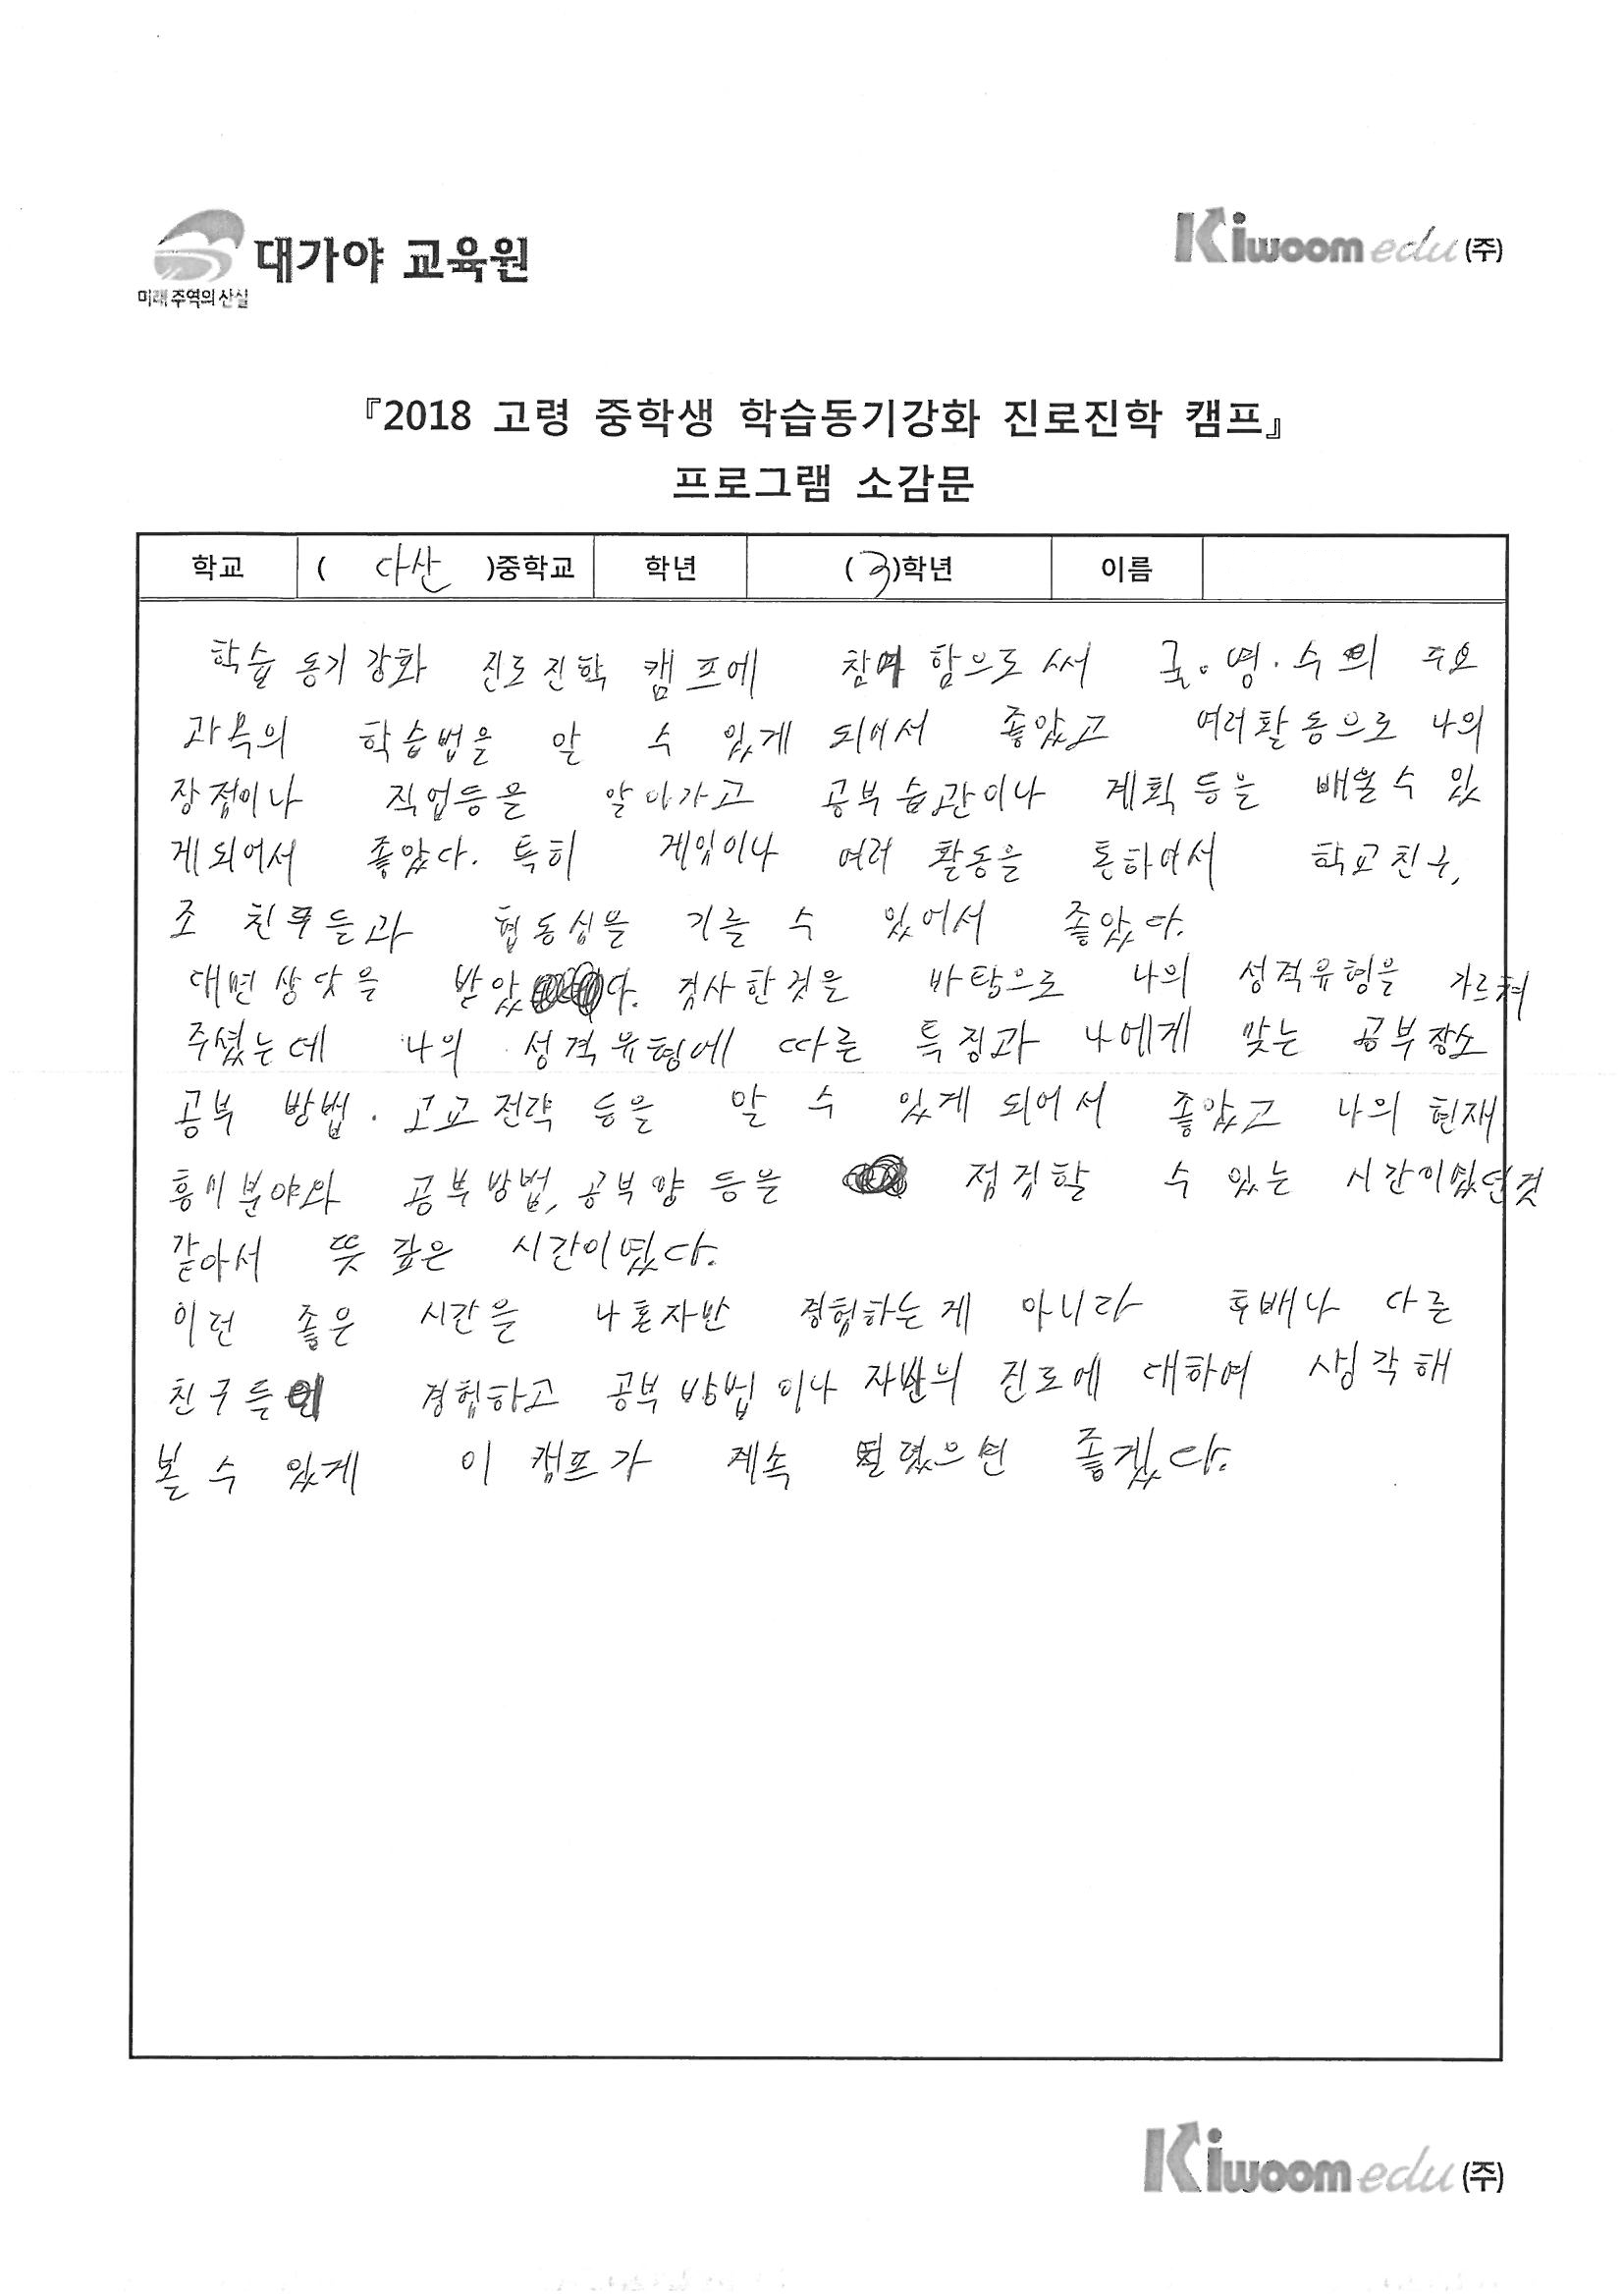 대가야 교육원
미래 주역의 산실
Kiwoom edu (주)
『2018 고령 중학생 학습동기강화 진로진학 캠프』
프로그램 소감문
학교 ( 다산 )중학교 학년 (3)학년 이름
학습 동기 강화 진로 진학 캠프에 참여 함으로 써 국·영·수의 주요
과목의 학습법을 알 수 있게 되어서 좋았고 여러활동으로 나의
장점이나 직업등을 알아가고 공부습관이나 계획등을 배울수 있
게되어서 좋았다. 특히 게임이나 여러 활동을 통하여서 학교친구,
조 친구들과 협동심을 기를 수 있어서 좋았다.
대면상닷을 받았다. 검사한것을 바탕으로 나의 성적유형을 가르쳐
주셨는데 나의 성격유형에 따른 특징과 나에게 맞는 공부장소
공부 방법·고교전략 등을 알 수 있게 되어서 좋았고 나의 현재
흥미분야와 공부방법, 공부양 등을 점검할 수 있는 시간이였던것
같아서 뜻 깊은 시간이였다.
이런 좋은 시간을 나혼자만 경험하는게 아니라 후배나 다른
친구들이 경험하고 공부방법이나 자신의 진로에 대하여 생각해
볼 수 있게 이 캠프가 계속 열렸으면 좋겠다.
Kiwoom edu (주)